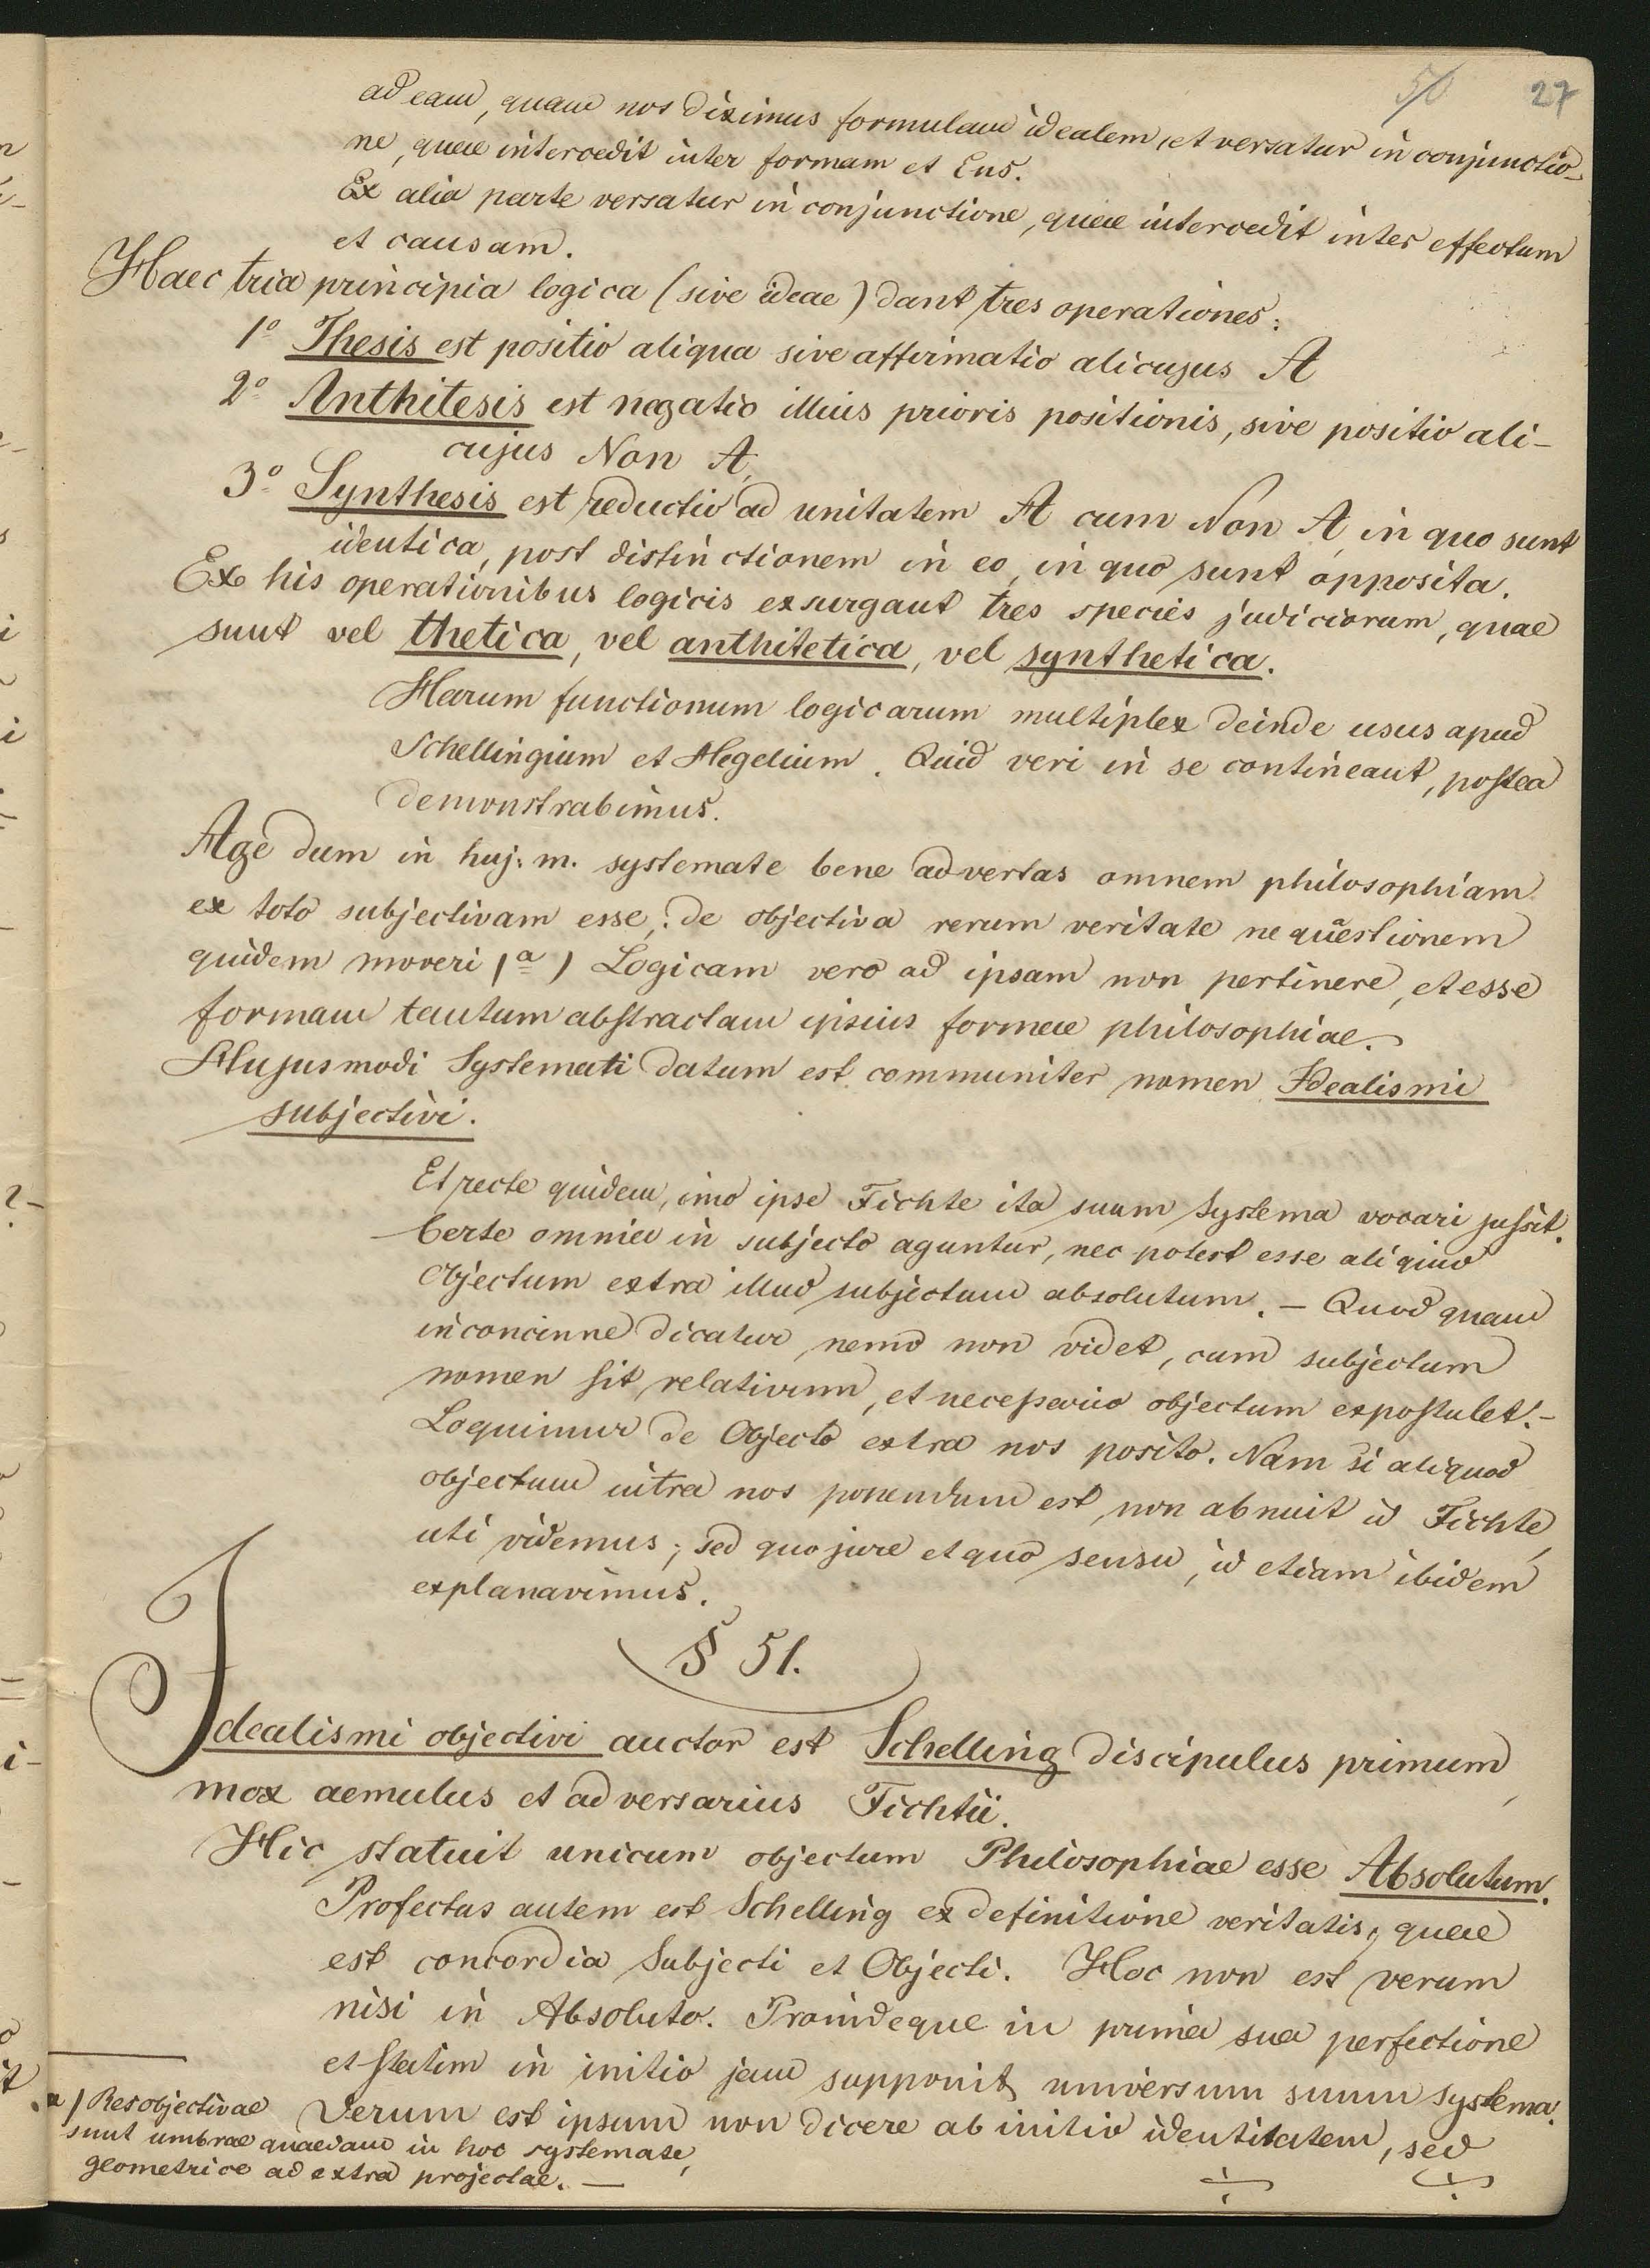 50 27
ad eam, quam nos diximus formulam idealem, et versatur in conjunctio-
ne, quae intercedit inter formam et Ens.
Ex alia parte versatur in conjunctione, quae intercedit inter effectum
et causam.
Haec tria principia logica (sive ideae) dant tres operationes:
1° Thesis est positio aliqua sive affirmatio alicujus A
2° Anthitesis est negatio illius prioris positionis, sive positio ali-
cujus Non A,
3° Synthesis est reductio ad unitatem A cum Non A, in quo sunt
identica, post distinctionem in eo, in quo sunt opposita.
Ex his operationibus logicis exsurgant tres species judiciorum, quae
sunt vel thetica, vel anthitetica, vel synthetica.
Harum functionum logicarum multiplex deinde usus apud
Schellingium et Hegelium. Quid veri in se contineant, postea
demonstrabimus.
Age dum in huj. m. systemate bene advertas omnem philosophiam
ex toto subjectivam esse; de objectiva rerum veritate ne quaestionem
quidem moveri (a) Logicam vero ad ipsam non pertinere, et esse
formam tantum abstractam ipsius formae philosophiae.
Hujusmodi Systemati datum est communiter nomen Idealismi
subjectivi.
Et recte quidem, imo ipse Fichte ita suum Systema vocari jussit.
Certe omnia in subjecto aguntur, nec potest esse aliquod
Objectum extra illud subjectum absolutum. – Quod quam
inconcinne dicatur nemo non videt, cum subjectum
nomen sit relativum, et necessario objectum expostulet. –
Loquimur de Objecto extra nos posito. Nam si aliquod
objectum intra nos ponendum est, non abnuit id Fichte,
uti videmus; sed quo jure et quo sensu, id etiam ibidem
explanavimus.
§ 51.
Idealismi objectivi auctor est Schelling discipulus primum,
mox aemulus et adversarius Fichtii.
Hic statuit unicum objectum Philosophiae esse Absolutum.
Profectus autem est Schelling ex definitione veritatis, quae
est concordia Subjecti et Objecti. Hoc non est verum
nisi in Absoluto. Proindeque in prima sua perfectione
et statim in initio jam supponit universum suum systema.
Verum est ipsum non dicere ab initio identitatem, sed
a) Res objectivae
sunt umbrae quaedam in hoc systemate,
geometrice ad extra projectae. –